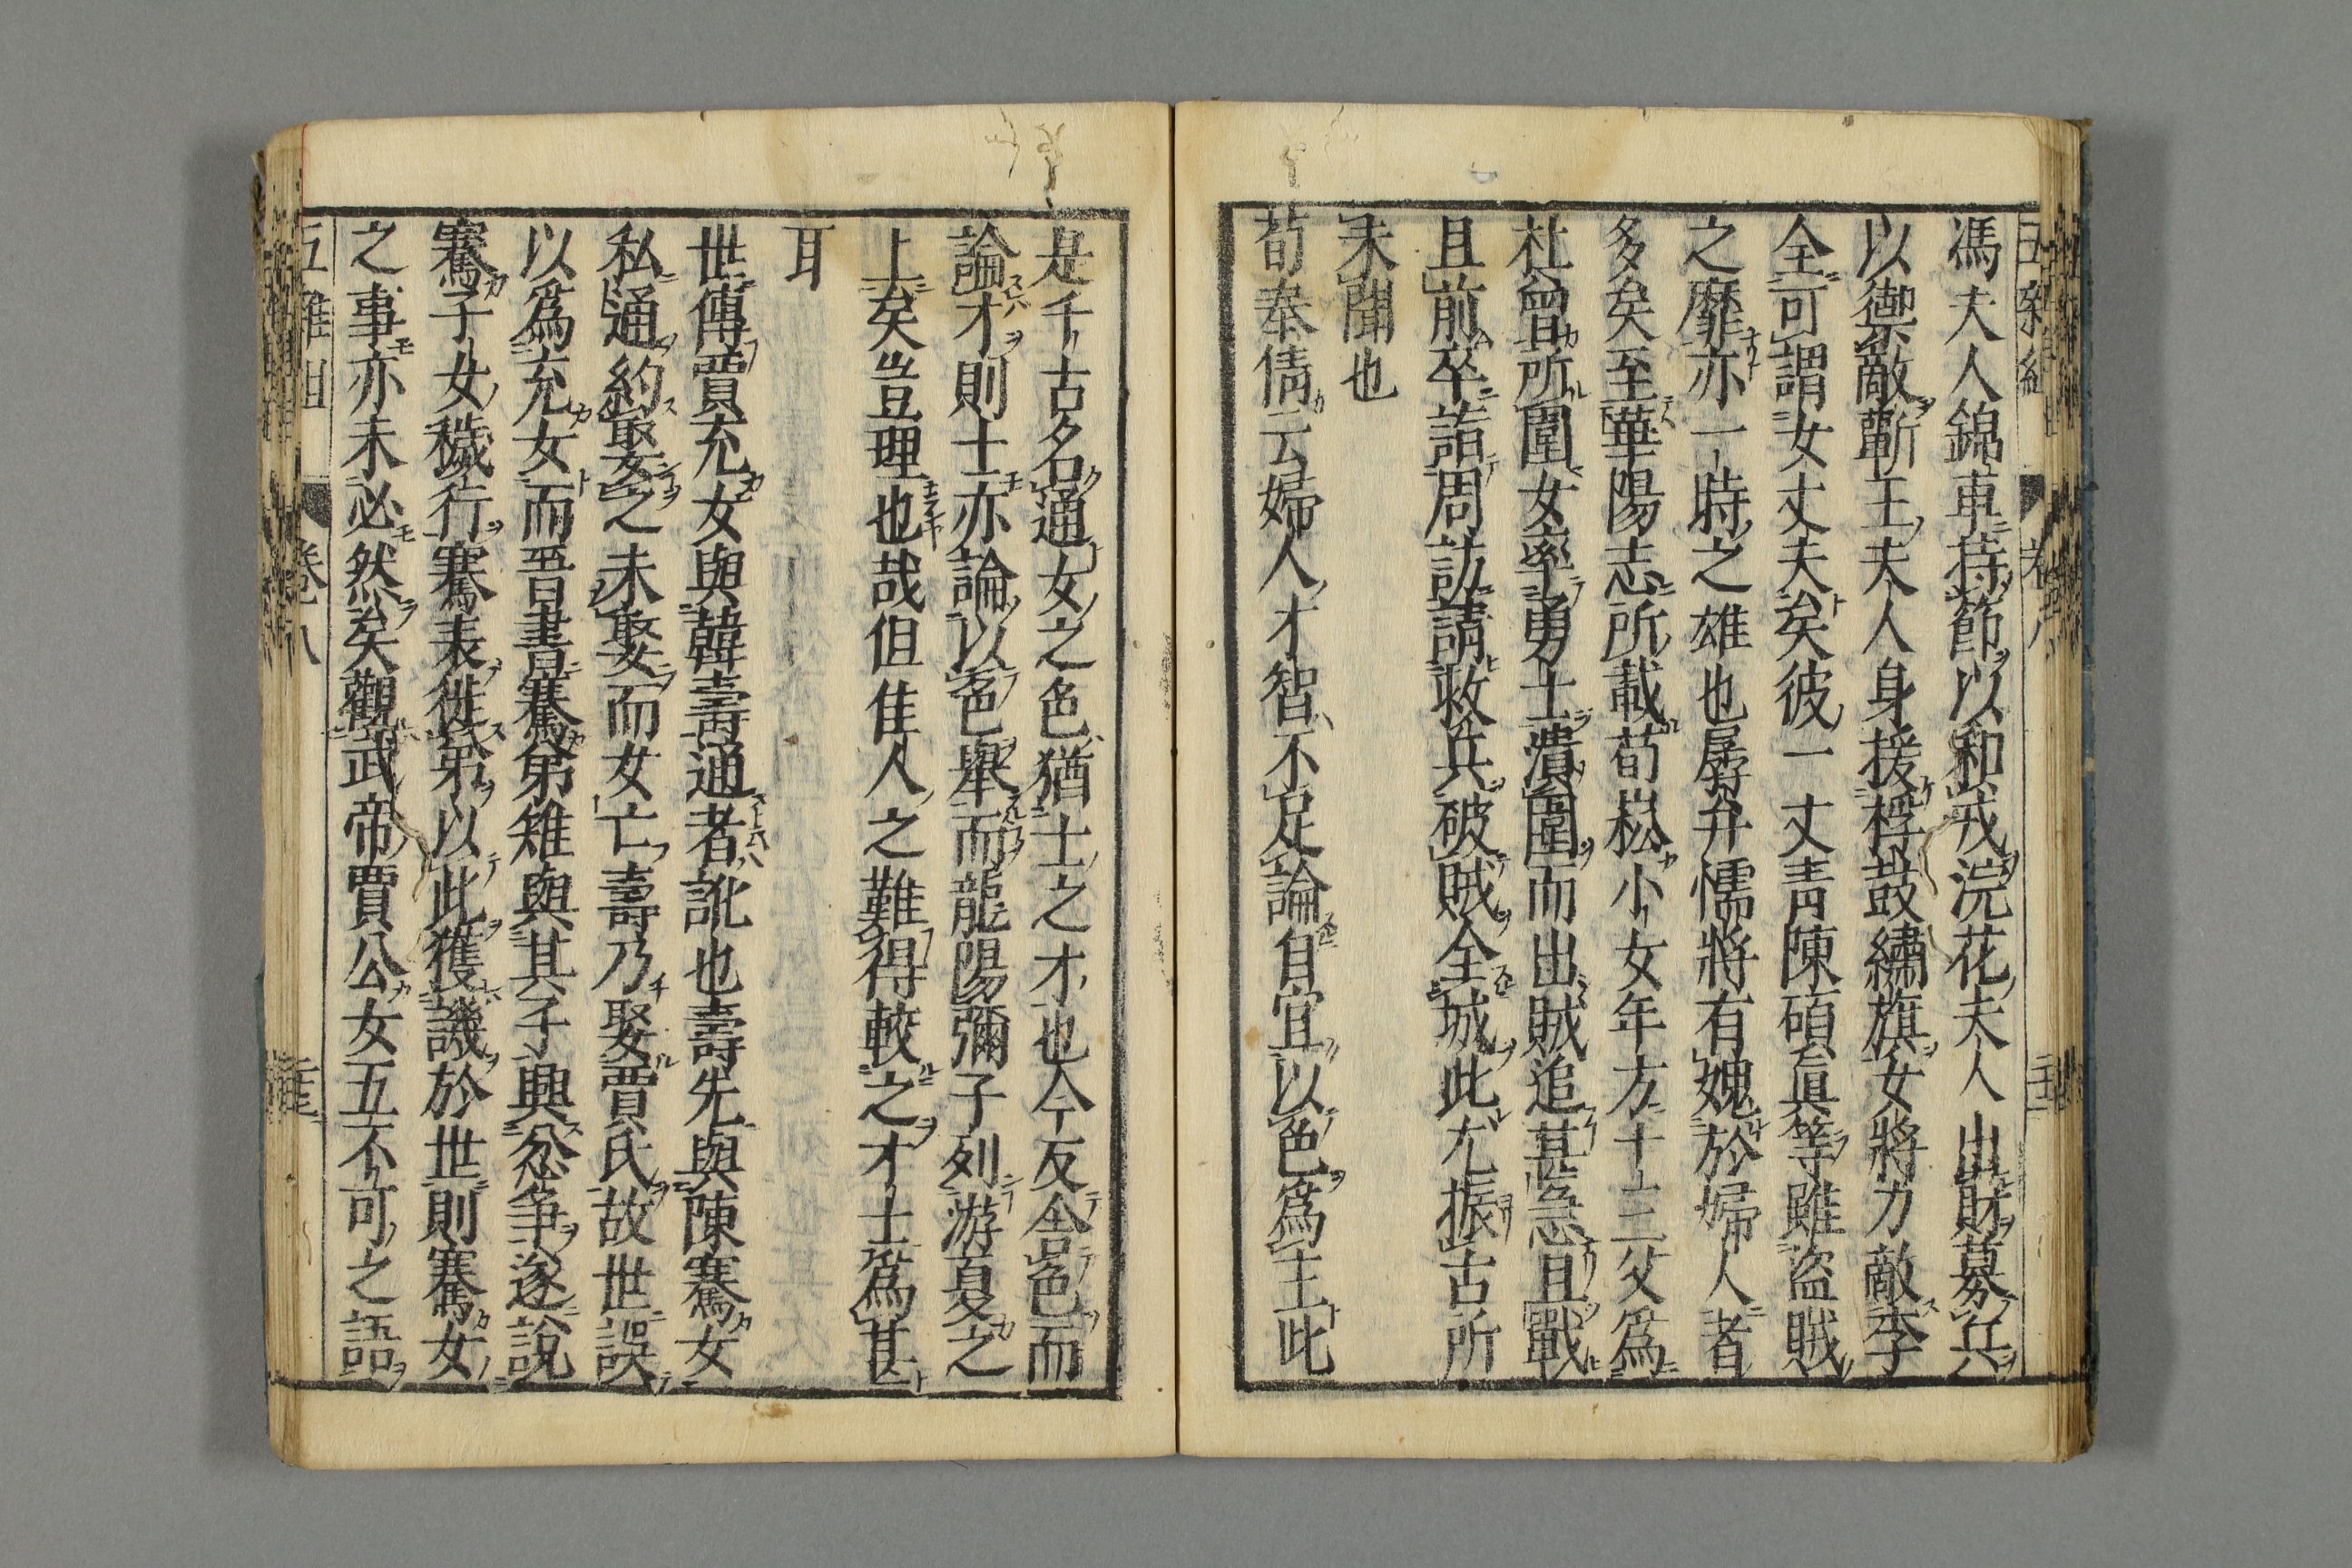 馮夫人錦車持節以和戎浣花夫人出財募兵
以禦敵蘄王夫人身援桴鼓繡旗女將力敵李
全可謂女丈夫矣彼一丈青陳碩眞等雖盜賊
之靡亦一時之雄也孱弁懦將有媿於婦人者
多矣至華陽志所載荀崧小女年方十三父爲
杜曾所圍女率勇士潰圍而出賊追甚急且戰
且前卒詣周訪請救兵破賊全城此尤振古所
未聞也
荀奉倩云婦人才智不足論自宜以色爲主此
是千古名通女之色猶士之才也今反舍色而
論才則士亦論以色舉而龍陽彌子列游夏之
上矣豈理也哉但佳人之難得較之才士爲甚
耳
世傳賈充女與韓壽通者訛也壽先與陳騫女
私通約娶之未娶而女亡壽乃娶賈氏故世誤
以爲充女而晉書騫弟雉與其子輿忿争遂說
騫子女穢行騫表徙弟以此獲譏於世則騫女
之事亦未必然矣觀武帝賈公女五不可之語
五雜俎 卷八